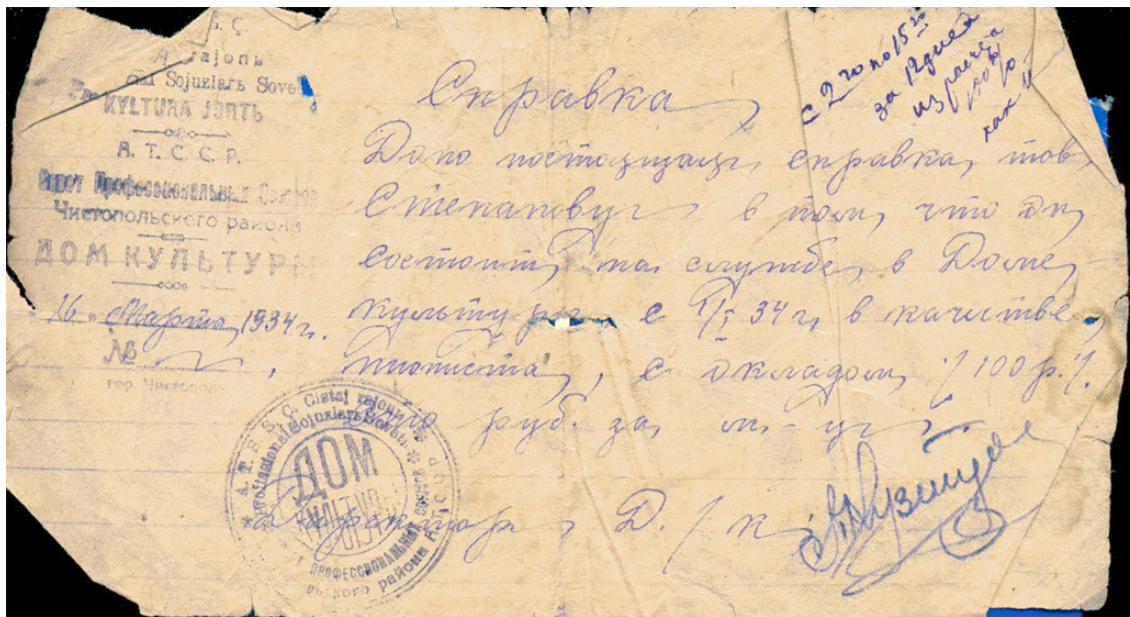 rajonь
Sojuzlarь Sove
KYLTURA JORTЬ
А. Т. С. С. Р.
Совет Профессиональных Союзов
Чистопольского района
ДОМ КУЛЬТУРЫ
16 " Марта 1934 г.
№
гор. Чистополь
с 2го по 15го
за 12 дней
из расчёта
100%
как и
Справка
Дано настоящая справка тов
Степановуг в том, что он
состоит на службе в Доме
культуры с 1/I 34 г. в качестве
пианиста, с окладом /100 р./.
сто руб. за м-цг.
Директор Д./к
A. T. S. S. Ç. Cistaj rajonь
Professional Sojuzlarь Sovetь
ДОМ
КУЛЬТУРЫ
ПРОФЕССИОНАЛЬНЫХ СОЮЗОВ
района